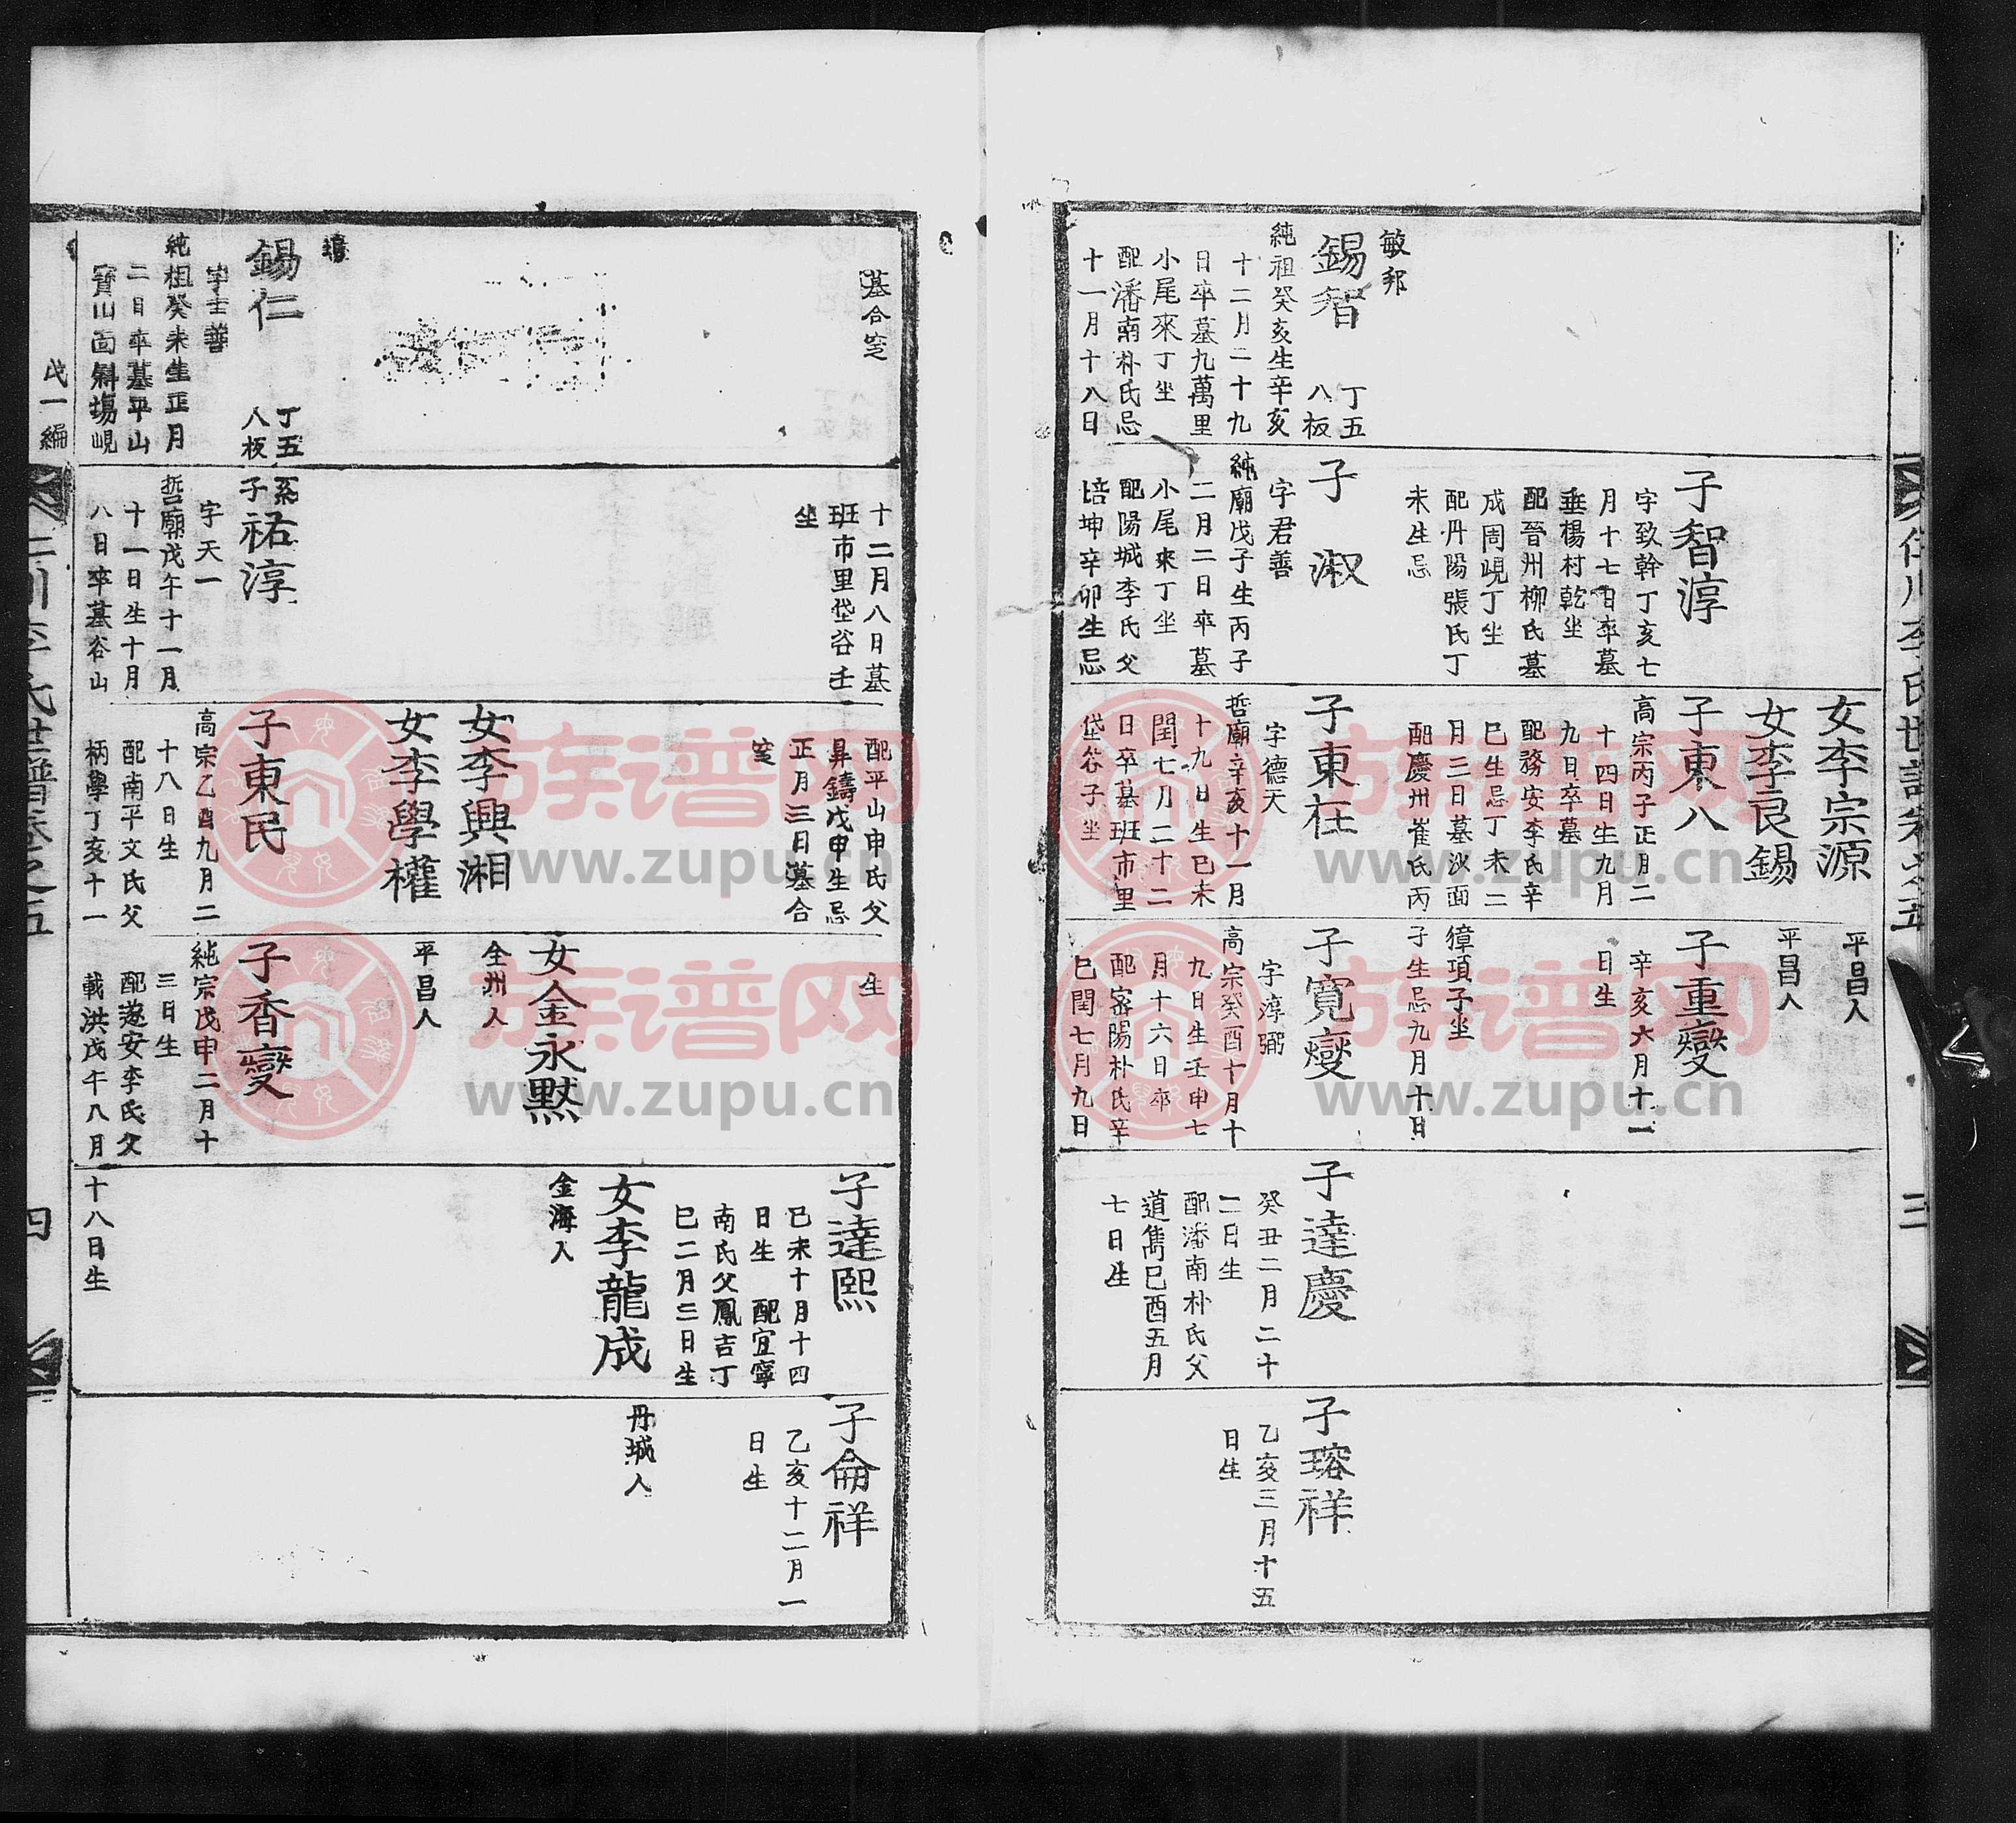 伊川李氏世譜卷之五
三
敏邦
錫智
丁五
八板
純祖癸亥生辛亥
十二月二十九
日卒墓九萬里
小尾來丁坐
配潘南朴氏忌
十一月十八日
子智淳
字致幹丁亥七
月十七日卒墓
垂楊村乾坐
配晉州柳氏墓
成周峴丁坐
配丹陽張氏丁
未生忌
子淑
字君善
純廟戊子生丙子
二月二日卒墓
小尾來丁坐
配陽城李氏父
培坤辛卯生忌
女李宗源
女李良錫
子東八
高宗丙子正月二
十四日生九月
九日卒墓
配務安李氏辛
巳生忌丁未二
月三日墓沙面
配慶州崔氏丙
子東在
字德天
哲廟辛亥十一月
十九日生已未
閏七月二十二
日卒墓班市里
垈谷子坐
平昌人
平昌人
子重燮
辛亥六月十一
日生
獐項子坐
子生忌九月十日
子寬燮
字淳弼
高宗癸酉十月十
九日生壬申七
月十六日卒
配密陽朴氏辛
巳閏七月九日
子達慶
癸丑二月二十
二日生
配潘南朴氏父
道雋已酉五月
七日生
子瑢祥
乙亥三月十五
日生
墓合窆
錫仁
丁五
八板
字士善
純祖癸未生正月
二日卒墓平山
寶山面斜場峴
十二月八日墓
班市里垈谷壬
坐
系
子祐淳
字天一
哲廟戊午十一月
十一日生十月
八日卒墓谷山
配平山申氏父
昇鑄戊申生忌
正月三日墓合
窆
女李興湘
女李學權
子東民
高宗乙酉九月二
十八日生
配南平文氏父
柄學丁亥十一
生
女金永默
全州人
平昌人
子香燮
純宗戊申二月十
三日生
配遂安李氏父
載洪戊午八月
子達熙
已未十月十四
日生 配宜寧
南氏父鳳吉丁
巳二月三日生
女李龍成
金海人
十八日生
子侖祥
乙亥十二月一
日生
丹城人
戊一編
李氏世譜卷之五
四
族谱网
www.zupu.cn
族谱网
www.zupu.cn
族谱网
www.zupu.cn
族谱网
www.zupu.cn